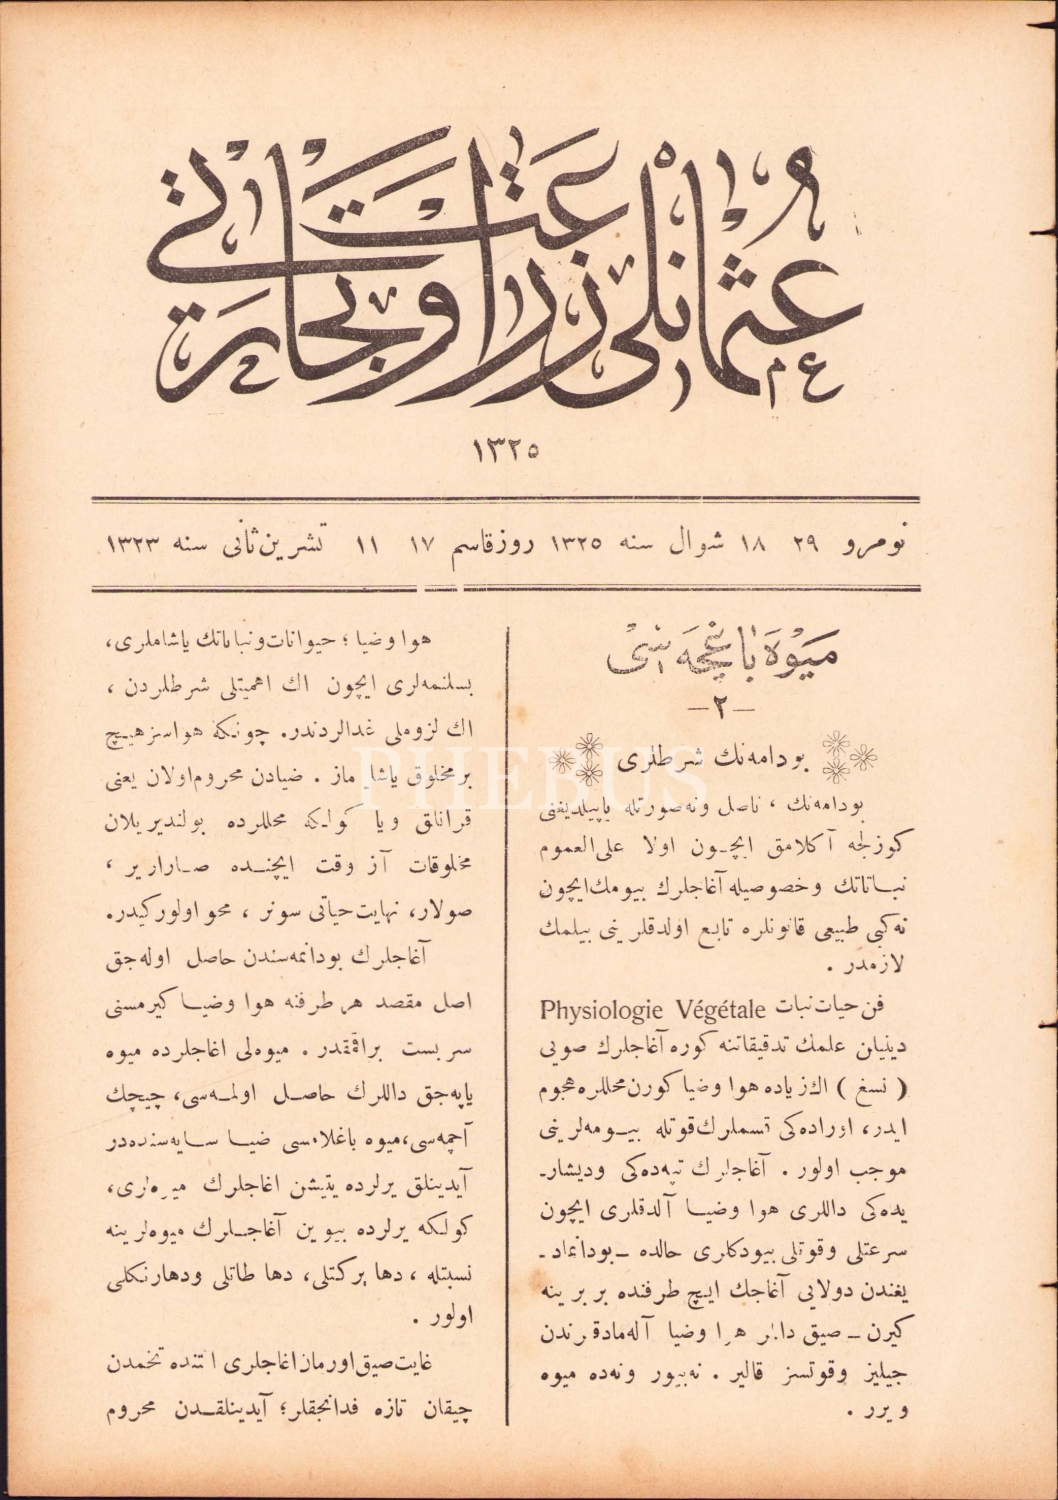 عثمانلی زراعت و تجارت غزته‌سی
١٣٢٥
نومرو ٢٩ ١٨ شوال سنه ١٣٢٥ روزقاسم ١٧ ١١ تشرین ثانی سنه ١٣٢٣
میوه باغچه‌سی
— ٢ —
بودامه‌نك شرطلری
بودامه‌نك ، ناصل ونه‌صورتله یاپیلدیغنی
كوزلجه آكلامق ایچون اولا علی‌العموم
نباتاتك وخصوصیله آغاجلرك بیومك‌ایچون
نه‌كبی طبیعی قانونلره تابع اولدقلرینی بیلمك
لازمدر .
فن حیات نبات Physiologie Végétale
دینیلن علمك تدقیقاتنه كوره آغاجلرك صویی
( نسغ ) اك‌زیاده هوا وضیا كورن‌محللره هجوم
ایدر، اوراده‌كی قسملرك‌قوتله بیومه‌لرینی
موجب اولور . آغاجلرك تپه‌ده‌كی ودیشاریـ
یده‌كی داللری هوا وضیا آلدقلری ایچون
سرعتلی وقوتلی بیودكلری حالده ـ بودانمادـ
یغندن دولایی آغاجك ایچ طرفنده بربرینه
كیرن ـ صیق داللر هوا وضیا آله‌مادقرندن
جیلیز وقوتسز قالیر . نه‌بیور ونه‌ده میوه
ویرر .
هوا وضیا ؛ حیوانات‌ونباتاتك یاشاملری،
بسلنمه‌لری ایچون اك اهمیتلی شرطلردن ،
اك لزوملی غدالردندر. چونكه هواسز هیچ
برمخلوق یاشایه‌ماز . ضیادن محروم‌اولان یعنی
قراناق ویا كولكه محللرده بولندیریلان
مخلوقات آز وقت ایچنده صاراریر ،
صولار، نهایت‌حیاتی سونر ، محو اولوركیدر.
آغاجلرك بودانمه‌سندن حاصل اوله‌جق
اصل مقصد هر طرفنه هوا وضیا كیرمسنی
سربست براقمقدر . میوه‌لی اغاجلرده میوه
یاپه‌جق داللرك حاصل اولمه‌سی، چیچك
آچمه‌سی،میوه باغلامسی ضیا سایه‌سنده‌در
آیدینلق یرلرده یتیشن اغاجلرك میوه‌لری،
كولكه یرلرده بیوین آغاجلرك میوه‌لرینه
نسبتله ، دها بركتلی، دها طاتلی ودهارنكلی
اولور .
غایت‌صیق‌اورمان‌اغاجلری آلتنده تخمدن
چیقان تازه فدانجقلر؛ آیدینلقدن محروم
PHEBUS